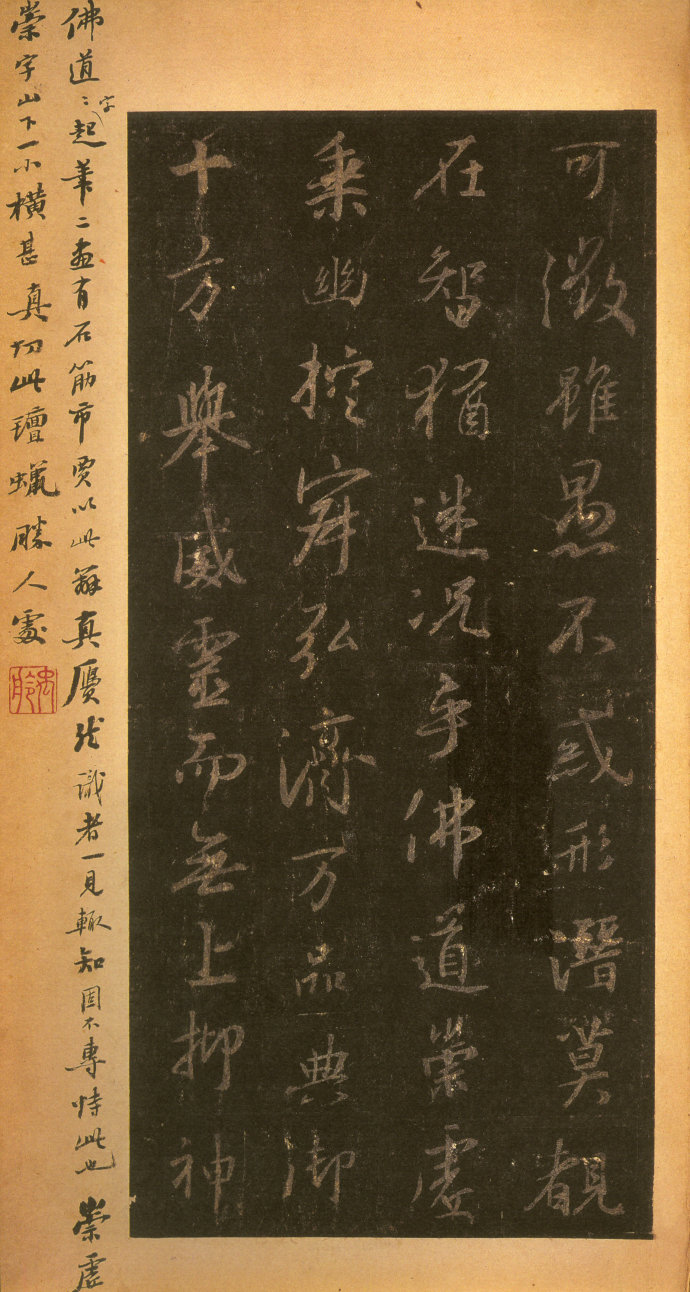 可徵雖愚不惑形潛莫覩
在智猶迷況乎佛道崇虛
乘幽控寂弘濟万品典御
十方舉威靈而無上抑神
佛道〻字起筆二畫有石筋市賈以此辨真贋然識者一見輒知固不專恃此也崇虛
崇字山下一小橫甚真切此氊蠟勝人處